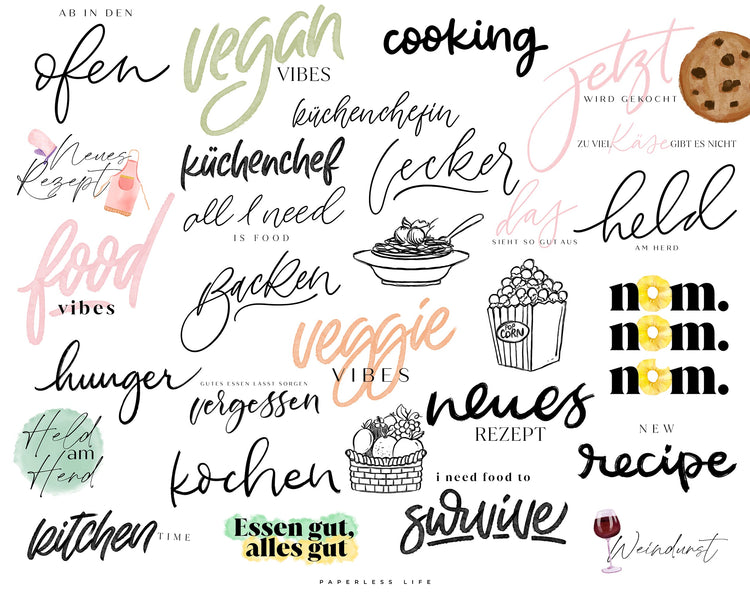 AB IN DEN
ofen
vegan
VIBES
cooking
jetzt
WIRD GEKOCHT
küchenchefin
Neues
Rezept
küchenchef
lecker
ZU VIEL Käse GIBT ES NICHT
all I need
IS FOOD
das
SIEHT SO GUT AUS
held
AM HERD
food
vibes
Backen
POP
CORN
nom.
nom.
nom.
veggie
VIBES
hunger
GUTES ESSEN LÄSST SORGEN
vergessen
neues
REZEPT
Held
am
Herd
kochen
i need food to
survive
NEW
recipe
kitchen TIME
Essen gut,
alles gut
Weindunst
PAPERLESS LIFE